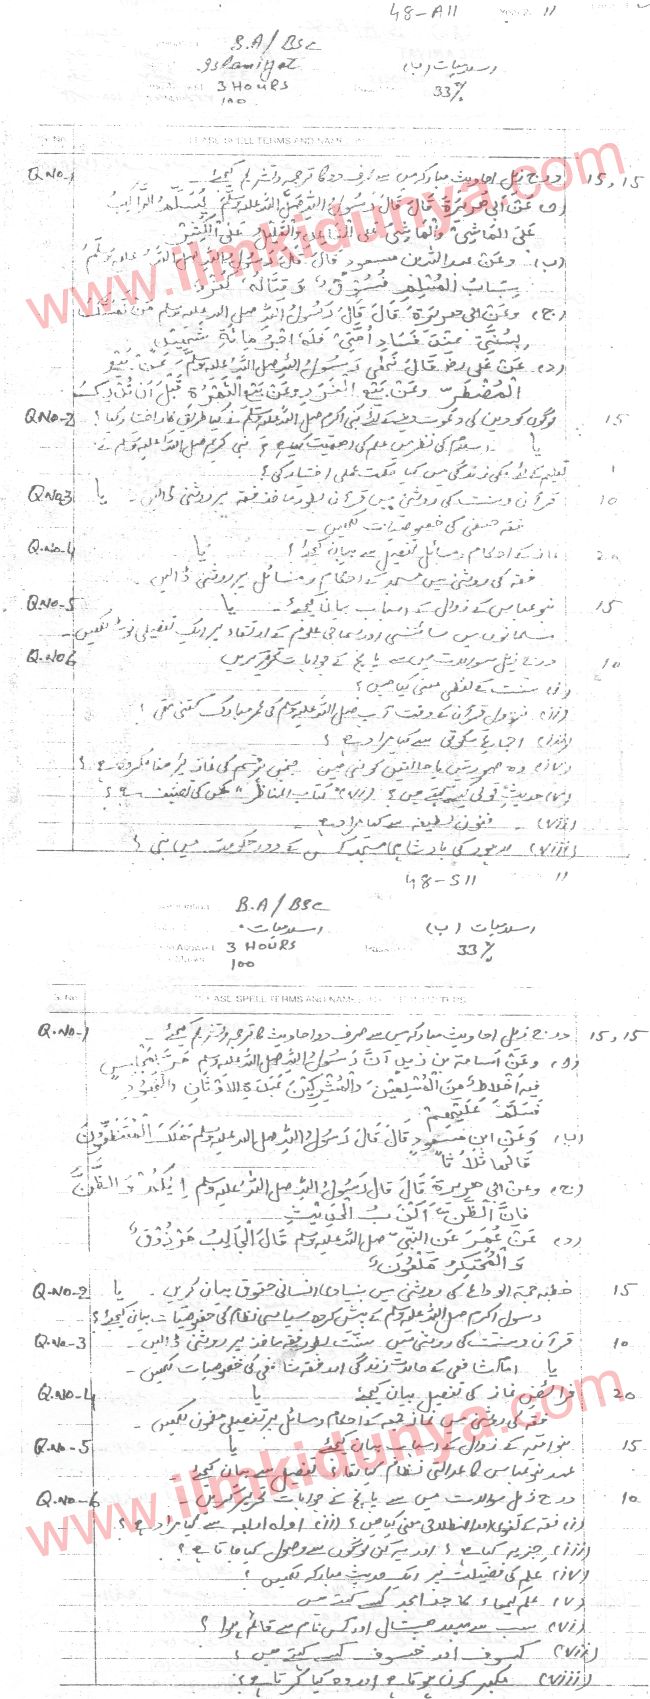 48-A11 11
B.A/BSc
Islamiyat اسلامیات (ب)
3 HOURS 33%
100
PLEASE SPELL TERMS AND NAMES
Q.No-1 درج ذیل احادیث مبارکہ میں سے صرف دو کا ترجمہ و تشریح کیجئے۔ 15,15
عَنْ ابی ھریرۃ قَالَ قَالَ رَسُولُ اللہِ صَلَّی اللہُ عَلَیْہِ وَسَلَّم یُسَلِّمُ الرَّاکِبُ
عَلَی المَاشِیْ وَالْمَاشِیْ عَلَی القَاعِدِ وَالْقَلِیْلُ عَلَی الْکَثِیْرِ
(ب) وعَنْ عبداللہ بن مسعود قَالَ قَالَ رَسُولُ اللہ صلی اللہ علیہ وسلم
سِبَابُ الْمُسْلِمِ فُسُوْقٌ وَ قِتَالُہٗ کُفْرٌ
(ج) وعَنْ ابی ھریرۃ قَالَ قَالَ رَسُولُ اللہ صلی اللہ علیہ وسلم مَنْ تَمَسَّکَ
بِسُنَّتِیْ عِنْدَ فَسَادِ اُمَّتِیْ فَلَہٗ اَجْرُ مِائَۃِ شَھِیْدٍ
(د) عَنْ علی رض قَالَ نَھٰی رَسُولُ اللہ صلی اللہ علیہ وسلم عَنْ بَیْعِ
الْمُضْطَرِّ وعَنْ بَیْعِ الْغَرَرِ وعَنْ بَیْعِ الثَّمَرَۃِ قَبْلَ اَنْ تُدْرِکَ
Q.No-2 لوگوں کو دین کی دعوت دینے کے لئے نبی اکرم صلی اللہ علیہ وسلم نے کیا طریق کار اختیار کیا؟ 15
یا۔ اسلام کی نظر میں علم کی اہمیت کیا ہے؟ نبی کریم صلی اللہ علیہ وسلم نے
تعلیم کے لئے مکی زندگی میں کیا حکمت عملی اختیار کی؟
Q.No3 قرآن و سنت کی روشنی میں قرآن بطور ماخذ فقہ پر روشنی ڈالیں۔ یا 10
فقہ حنفی کی خصوصیات لکھیں۔
Q.No-4 نماز کے احکام و مسائل تفصیل سے بیان کیجئے؟ یا 20
فقہ کی روشنی میں مسجد کے احکام و مسائل پر روشنی ڈالیں۔
Q.No-5 بنو عباس کے زوال کے اسباب بیان کیجئے۔ یا 15
مسلمانوں میں سائنسی اور سماجی علوم کے ارتقاء پر ایک تفصیلی نوٹ لکھیں۔
Q.No6 درج ذیل سوالات میں سے پانچ کے جوابات تحریر کریں 10
(i) سنت کے لفظی معنی کیا ہیں؟
(ii) نزول قرآن کے وقت آپ صلی اللہ علیہ وسلم کی عمر مبارک کتنی تھی؟
(iii) اجماع سکوتی سے کیا مراد ہے؟
(iv) وہ صورتیں یا حالتیں کونسی ہیں جن میں ہر قسم کی نماز پڑھنا مکروہ ہے؟
(v) حدیث قولی کسے کہتے ہیں؟ (vi) "کتاب المناظر" کس کی تصنیف ہے؟
(vii) فنون لطیفہ سے کیا مراد ہے۔
(viii) لاہور کی بادشاہی مسجد کس کے دور حکومت میں بنی؟
48-S11 11
B.A/BSc
اسلامیات اسلامیات (ب)
3 HOURS 33%
100
PLEASE SPELL TERMS AND NAMES
Q.No-1 درج ذیل احادیث مبارکہ میں سے صرف دو احادیث کا ترجمہ و تشریح کیجئے۔ 15,15
وعَنْ اسامۃ بن زیدٍ اَنَّ رَسُولُ اللہِ صلی اللہ علیہ وسلم مَرَّ بِمَجْلِسٍ
فِیہِ اَخْلَاطٌ مِنَ الْمُسْلِمِیْنَ وَالْمُشْرِکِیْنَ عَبَدَۃِ الاَوْثَانِ وَالْیَھُوْدِ
فَسَلَّمَ عَلَیْھِمْ
(ب) وَعَنْ ابن مسعودٍ قَالَ قَالَ رَسُولُ اللہِ صلی اللہ علیہ وسلم ھَلَکَ الْمُتَنَطِّعُوْنَ
قَالَھَا ثَلَاثًا
(ج) وعن ابی ھریرۃ قَالَ قَالَ رَسُولُ اللہِ صلی اللہُ علیہ وسلم اِیَّاکُمْ وَالظَّنَّ
فَاِنَّ الظَّنَّ اَکْذَبُ الْحَدِیْثِ
(د) عَنْ عُمَرَ عَنِ النَّبِیِّ صلی اللہ علیہ وسلم قَالَ الْجَالِبُ مَرْزُوْقٌ
وَالْمُحْتَکِرُ مَلْعُوْنٌ
Q.No-2 خطبہ حجۃ الوداع کی روشنی میں بنیادی انسانی حقوق بیان کریں۔ یا 15
رسول اکرم صلی اللہ علیہ وسلم کے پیش کردہ سیاسی نظام کی خصوصیات بیان کیجئے؟
Q.No-3 قرآن و سنت کی روشنی میں سنت بطور فقہ ماخذ پر روشنی ڈالیں۔ 10
یا امام شافعی کے حالات زندگی اور فقہ شافعی کی خصوصیات لکھیں۔
Q.No-4 فرائض نماز کی تفصیل بیان کیجئے یا 20
فقہ کی روشنی میں نماز جمعہ کے احکام و مسائل پر تفصیلی مضمون لکھیں۔
Q.No-5 بنو امیہ کے زوال کے اسباب بیان کیجئے یا 15
عہد بنو عباس کا عدالتی نظام کیا تھا؟ تفصیل سے بیان کیجئے۔
Q.No-6 درج ذیل سوالات میں سے پانچ کے جوابات تحریر کریں۔ 10
(i) فقہ کے لغوی اور اصطلاحی معنی کیا ہیں؟ (ii) اولہ اربعہ سے کیا مراد ہے؟
(iii) جزیہ کیا ہے؟ اور یہ کن لوگوں سے وصول کیا جاتا ہے؟
(iv) علم کی فضیلت پر ایک حدیث مبارکہ لکھیں؟
(v) علم کیمیاء کا جد امجد کسے کہتے ہیں
(vi) سب سے پہلے ہسپتال اور کس نام سے قائم ہوا؟
(vii) کسوف اور خسوف کسے کہتے ہیں؟
(viii) مکبر کون ہوتا ہے اور وہ کیا کرتا ہے؟
www.ilmkidunya.com
www.ilmkidunya.com